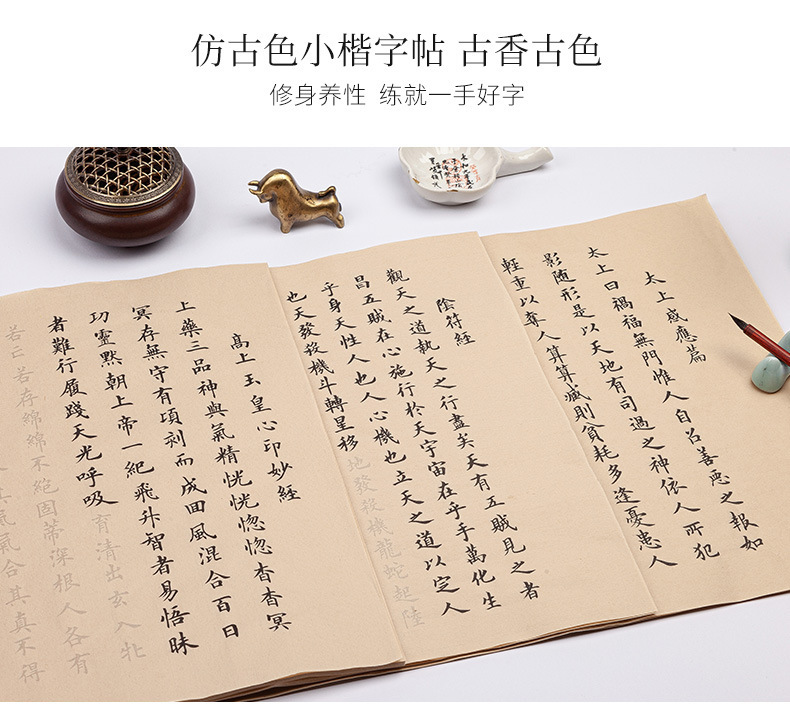 仿古色小楷字帖 古香古色
修身养性 练就一手好字
太上感應篇
太上曰禍福無門惟人自召善惡之報如
影随形是以天地有司過之神依人所犯
輕重以奪人算算减則貧耗多逢憂患人
陰符經
觀天之道執天之行盡矣天有五賊見之者
昌五賊在心施行於天宇宙在乎手萬化生
乎身天性人也人心機也立天之道以定人
也天發殺機斗轉星移地發殺機龍蛇起陸
高上玉皇心印妙經
上藥三品神與氣精恍恍惚惚杳杳冥
冥存無守有項刻而成回風混合百日
功靈默朝上帝一紀飛升智者易悟昧
者難行履踐天光呼吸育清出玄入牝
若亡若存綿綿不絕固蒂深根人各有
氣合其真不得